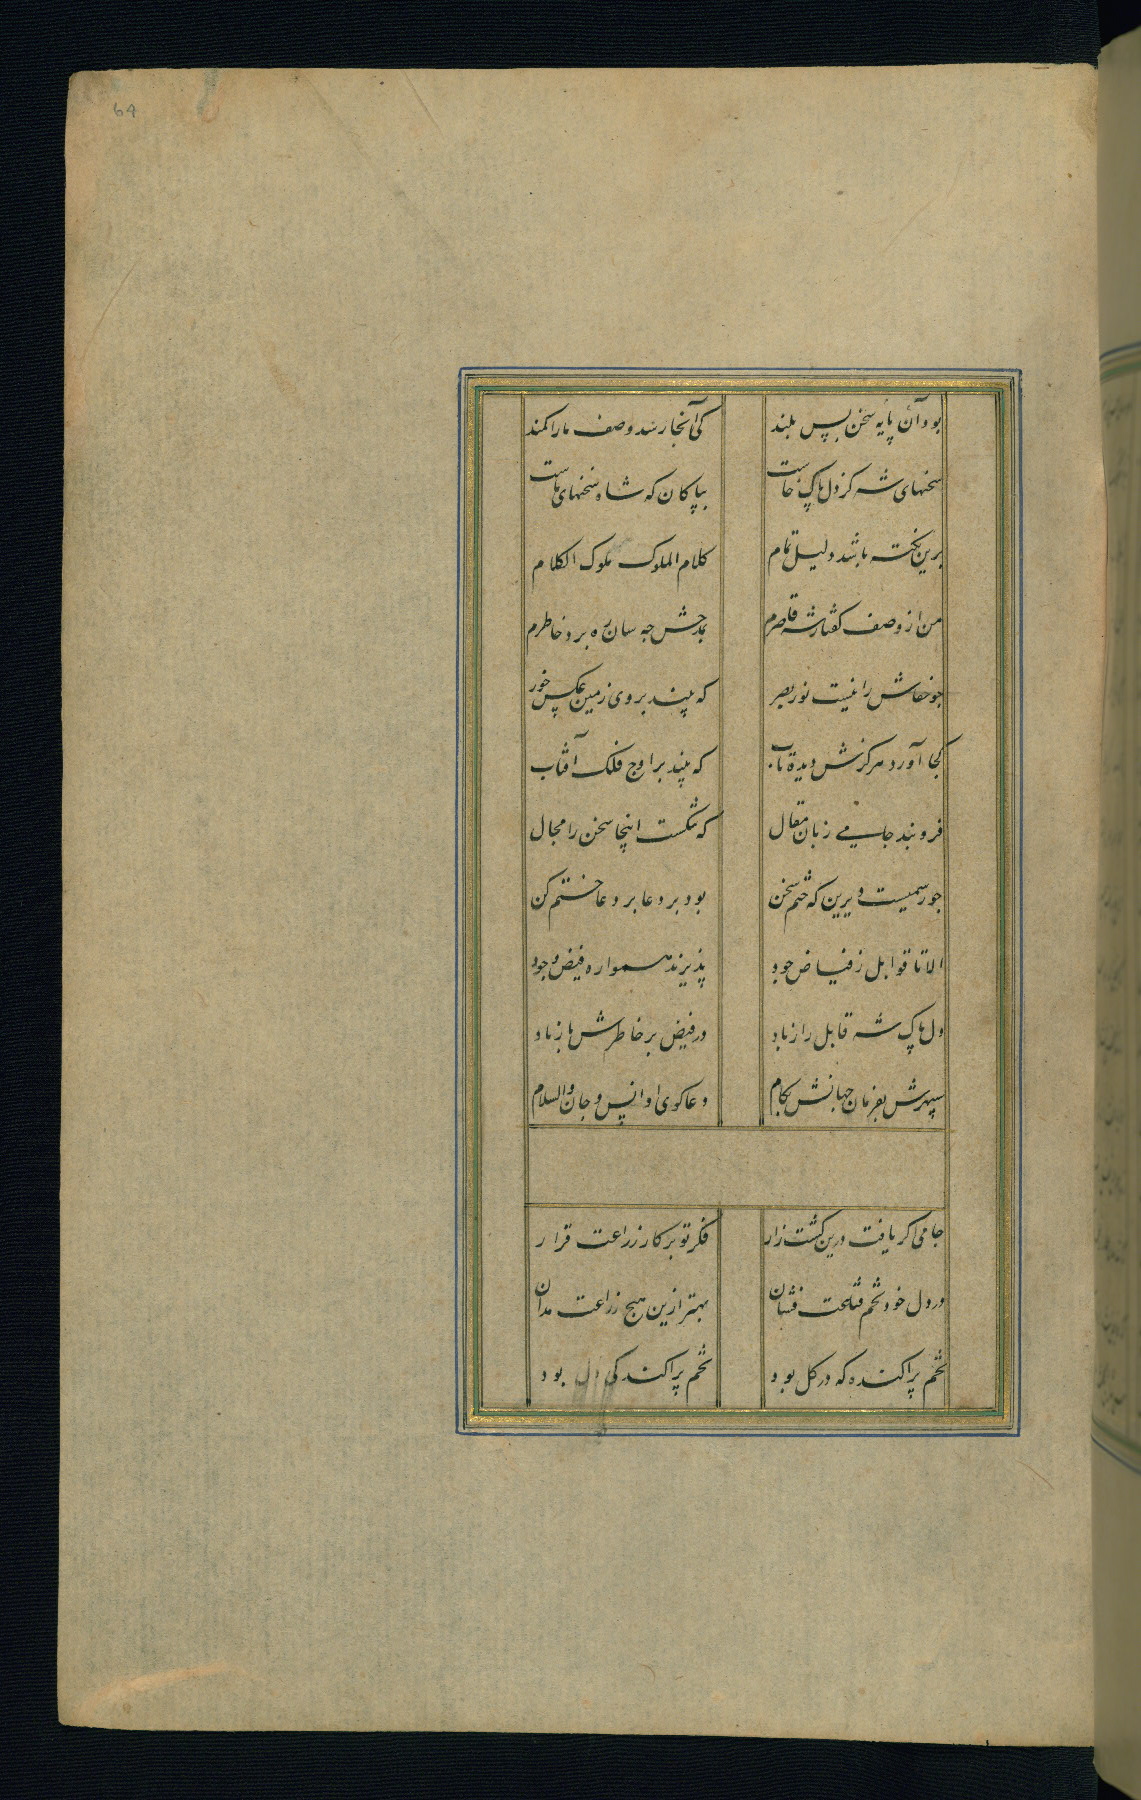 64
بود آن پایه سخن بس بلند کی آنجا رسد وصف ما را کمند
سخنهای شه کز دل پاک خاست بپاکان که شاه سخنهای ماست
برین نکته باشد دلیل تمام کلام الملوک ملوک الکلام
من از وصف کفتار شه قاصرم بمدحش جه سان ره برد خاطرم
جو خفاش را نیست نور بصر که بیند بروی زمین عکس خور
کجا آورد هرکزش دیده تاب که بیند بر اوج فلک آفتاب
فروبند جامی زبان مقال که تنکست اینجا سخن را مجال
جو رسمیست دیرین که ختم سخن بود بر دعا بر دعا ختم کن
الا تا قوابل ز فیاض جود پذیرند همواره فیض وجود
دل پاک شه قابل راز باد در فیض بر خاطرش باز باد
سپهرش بفرمان جهانش بکام دعاکوی او انس و جان والسلام
جامی اکر یافت درین کشت زار فکر تو بر کار زراعت قرار
در دل خود تخم قناعت فشان بهتر ازین هیج زراعت مدان
تخم پراکنده که در کل بود تخم پراکندکی دل بود